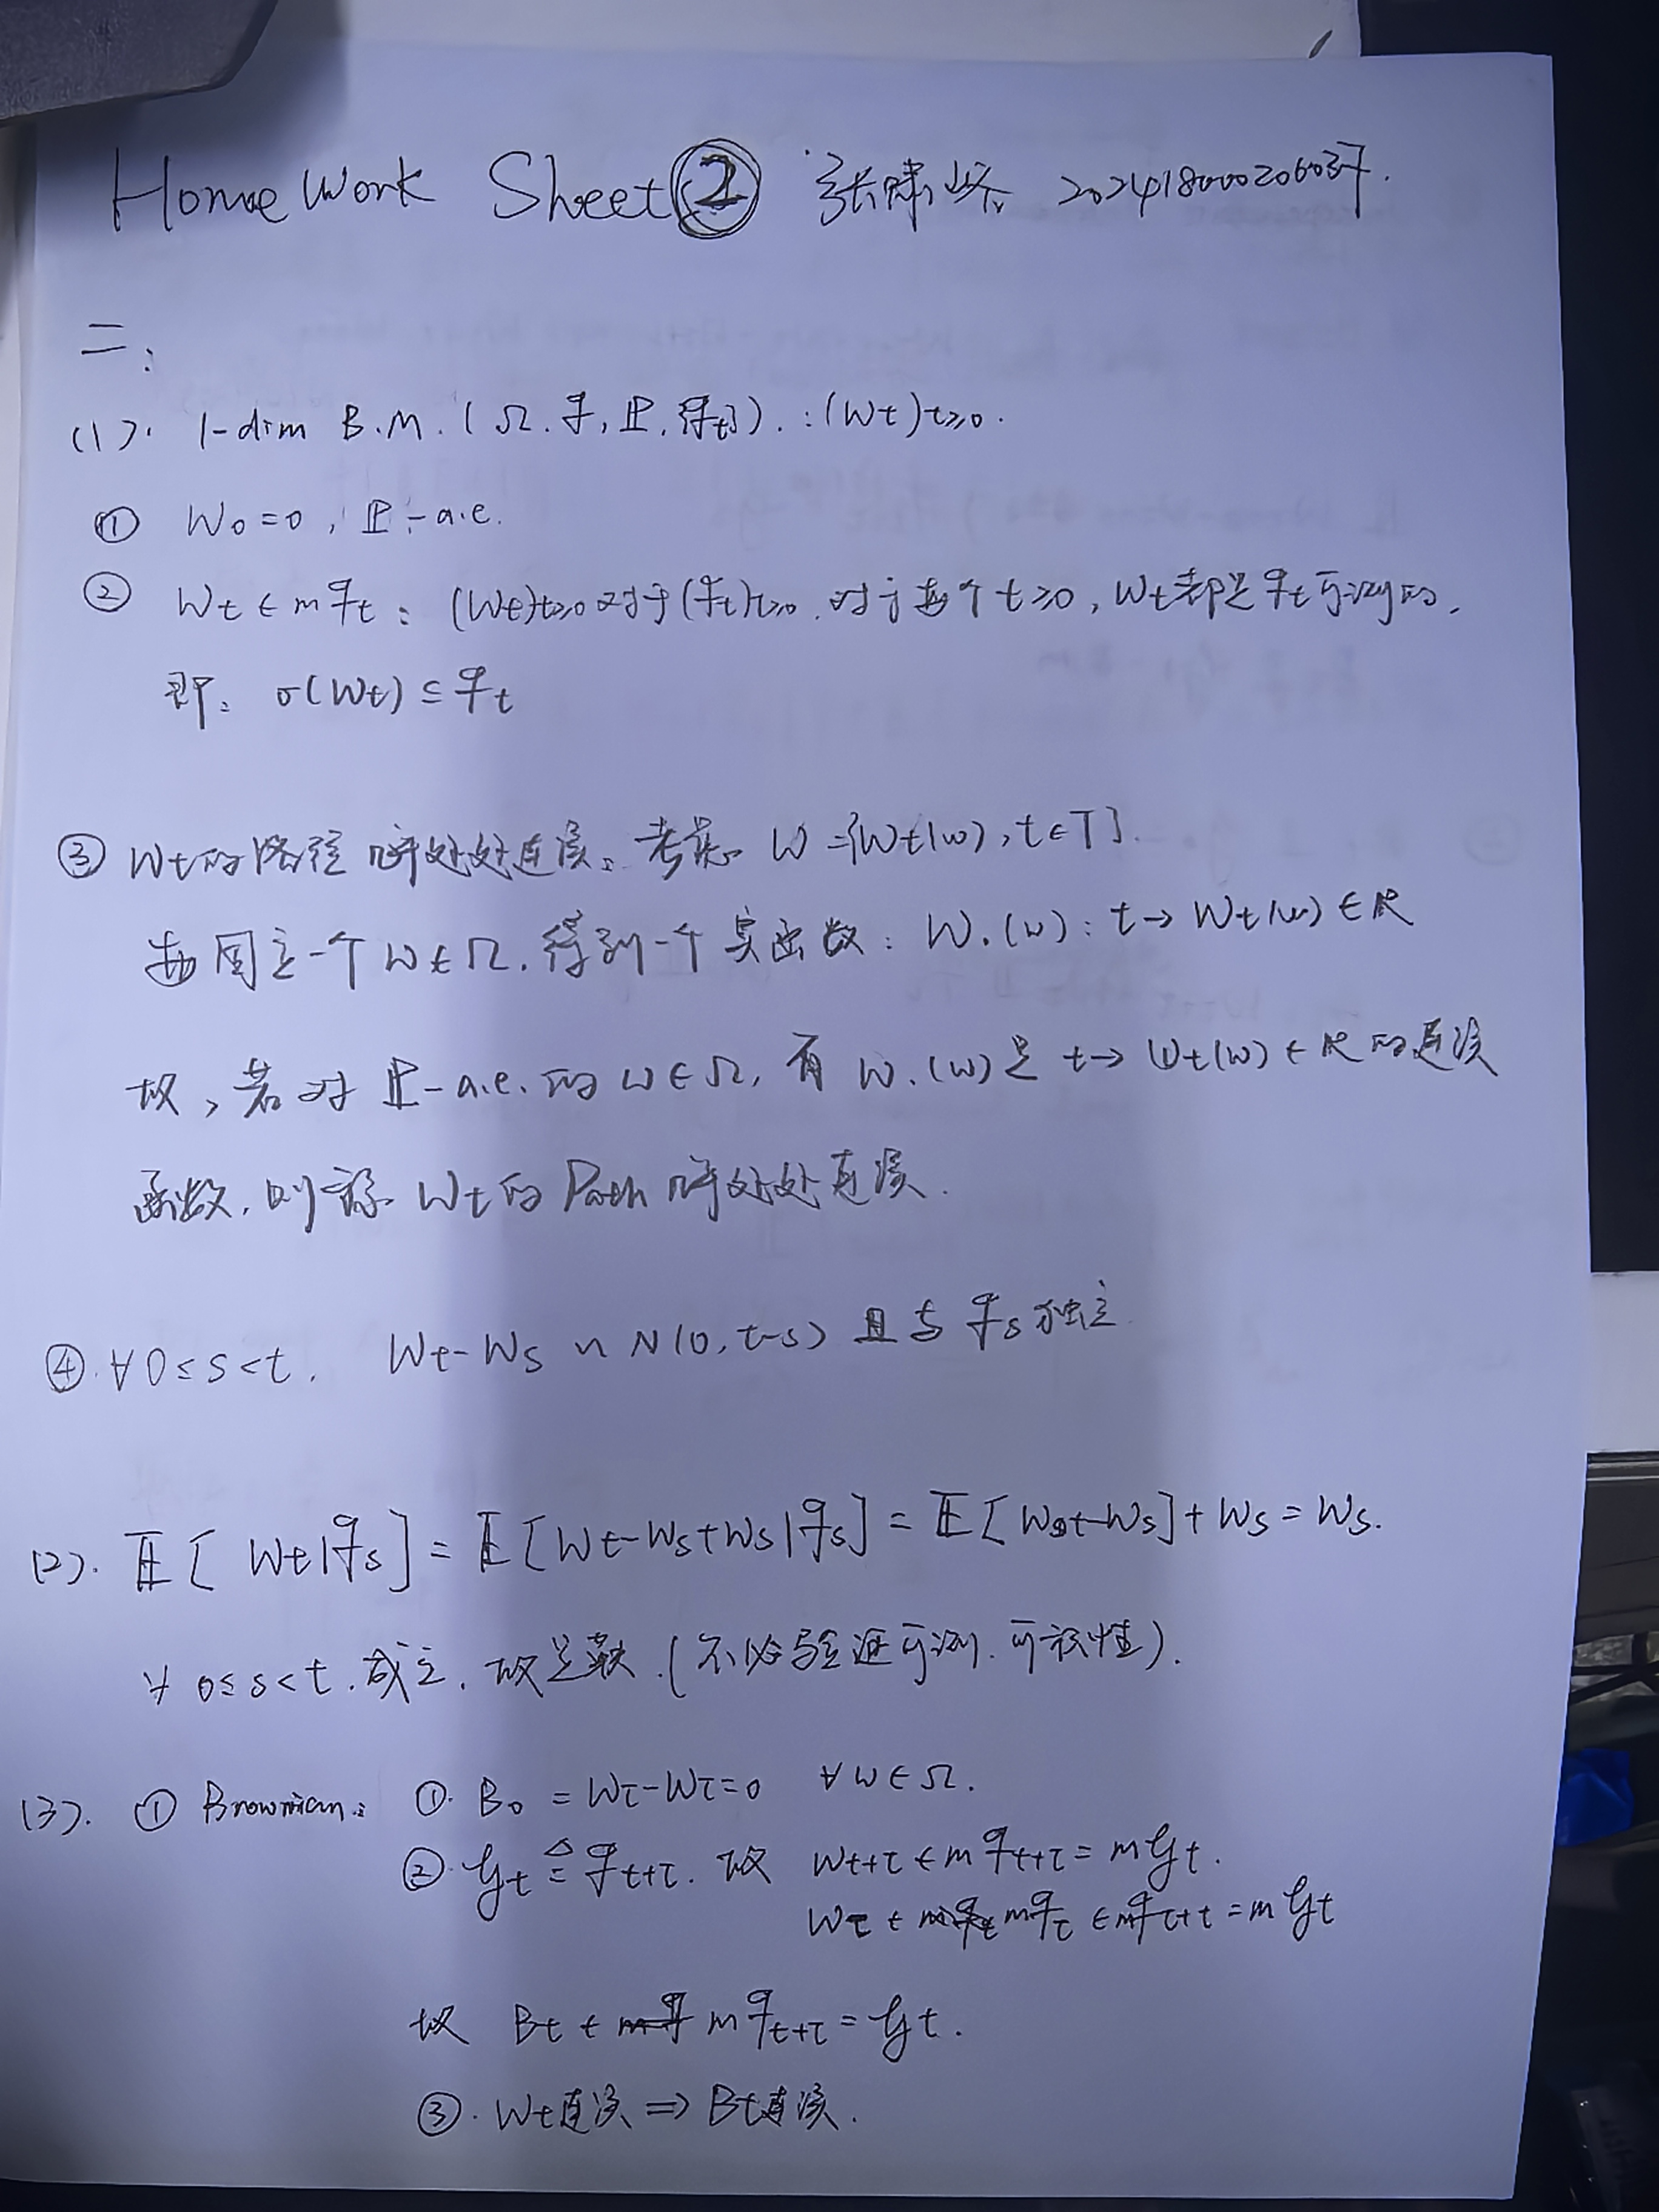 HomeWork Sheet② 张啸峪 202418000206037.
二:
(1). 1-dim B.M. (Ω. ℱ, ℙ, {ℱt}). : (Wt)t≥0.
① W0=0, ℙ-a.e.
② Wt∈mℱt: (Wt)t≥0 对于(ℱt)t≥0. 对于每个t≥0, Wt都是ℱt可测的.
即: σ(Wt)⊆ℱt
③ Wt的路径 几乎处处连续. 考虑 W={Wt(ω), t∈T}.
每固定一个ω∈Ω. 得到一个实函数: W.(ω): t→Wt(ω)∈ℝ
故, 若对 ℙ-a.e. 的ω∈Ω, 有 W.(ω)是 t→Wt(ω)∈ℝ的连续
函数. 则称 Wt的Path 几乎处处连续.
④. ∀0≤s<t. Wt-Ws ~ N(0, t-s) 且与 ℱs 独立
(2). 𝔼[Wt|ℱs] = 𝔼[Wt-Ws+Ws|ℱs] = 𝔼[Wt-Ws]+Ws=Ws.
∀ 0≤s<t. 成立. 故是鞅. (不必验证可测. 可积性).
(3). ① Brownian: ①. B0 = Wτ-Wτ=0 ∀ω∈Ω.
②. 𝒢t ≜ ℱt+τ. 故 Wt+τ∈mℱt+τ=m𝒢t.
Wτ∈mℱτ∈mℱτ+t=m𝒢t
故 Bt∈mℱt+τ=𝒢t.
③. Wt连续 ⇒ Bt连续.